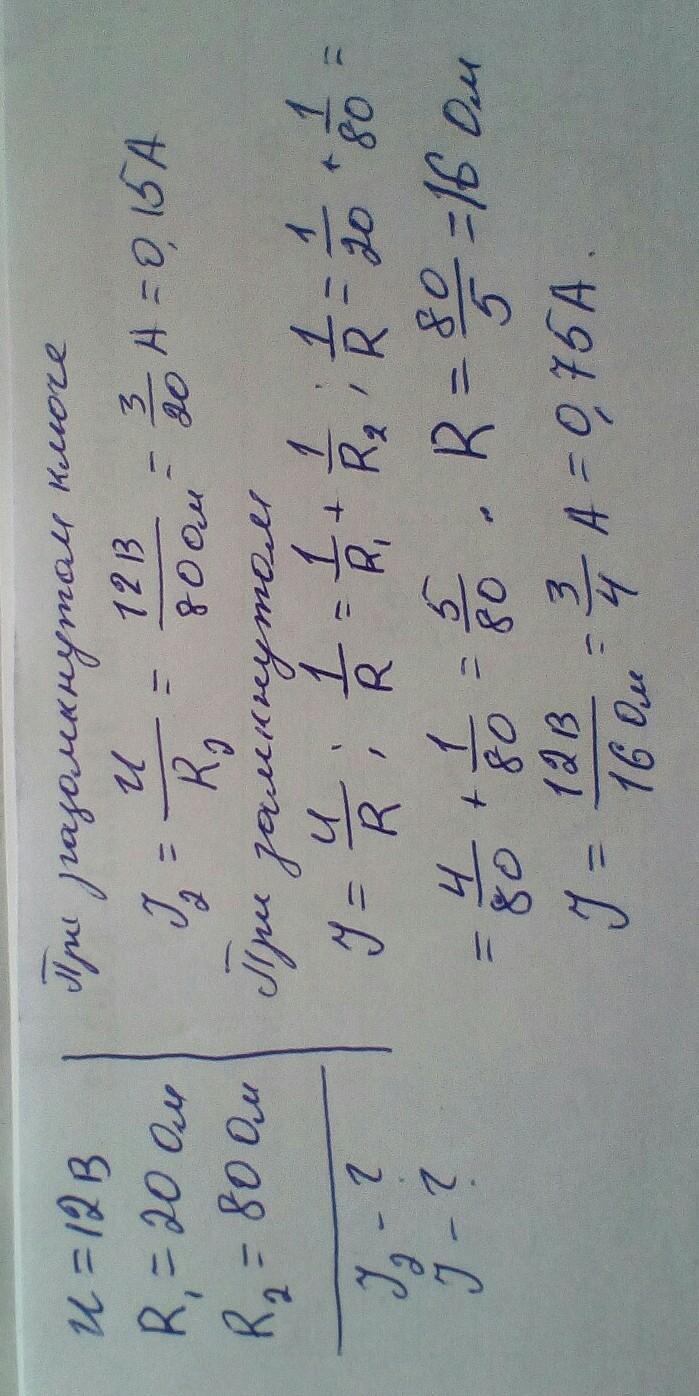 U = 12 В
R₁ = 20 Ом
R₂ = 80 Ом
J₂ - ?
J - ?
При разомкнутом ключе
J₂ = U/R₂ = 12 В/80 Ом = 3/20 А = 0,15 А
При замкнутом
J = U/R ; 1/R = 1/R₁ + 1/R₂ ; 1/R = 1/20 + 1/80 =
= 4/80 + 1/80 = 5/80 . R = 80/5 = 16 Ом
J = 12 В/16 Ом = 3/4 А = 0,75 А.